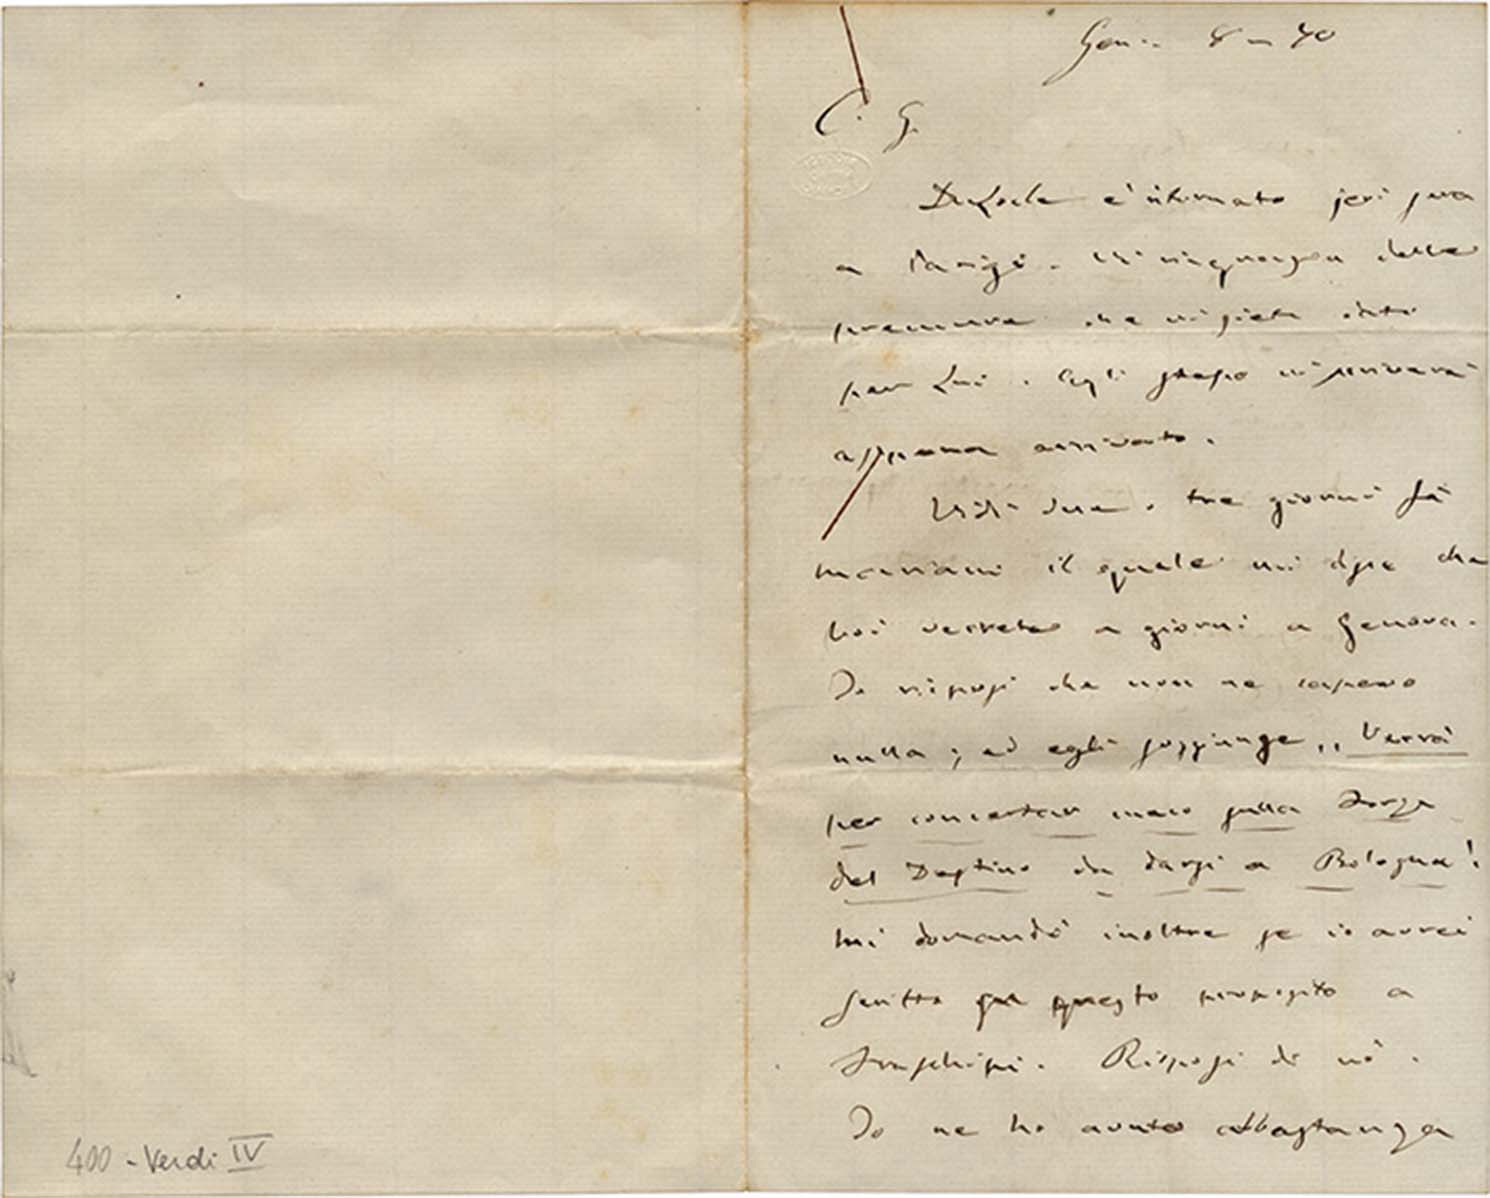 Gen: 4 - 70
C. G.
DuLocle è ritornato jeri sera
a Parigi. Vi ringrazia delle
premure che vi siete dato
per Lui. Egli stesso vi scriverà
appena arrivato.
Vidi due o tre giorni fà
Mariani il quale mi disse che
Voi verrete a giorni a Genova.
Io risposi che non ne sapevo
nulla; ed egli soggiunge „Verrà
per concertar meco sulla Forza
del Destino da darsi a Bologna!
Mi domandò inoltre se io avrei
scritto su questo proposito a
Fraschini. Risposi di nò.
Io ne ho avuto abbastanza
400 - Verdi IV